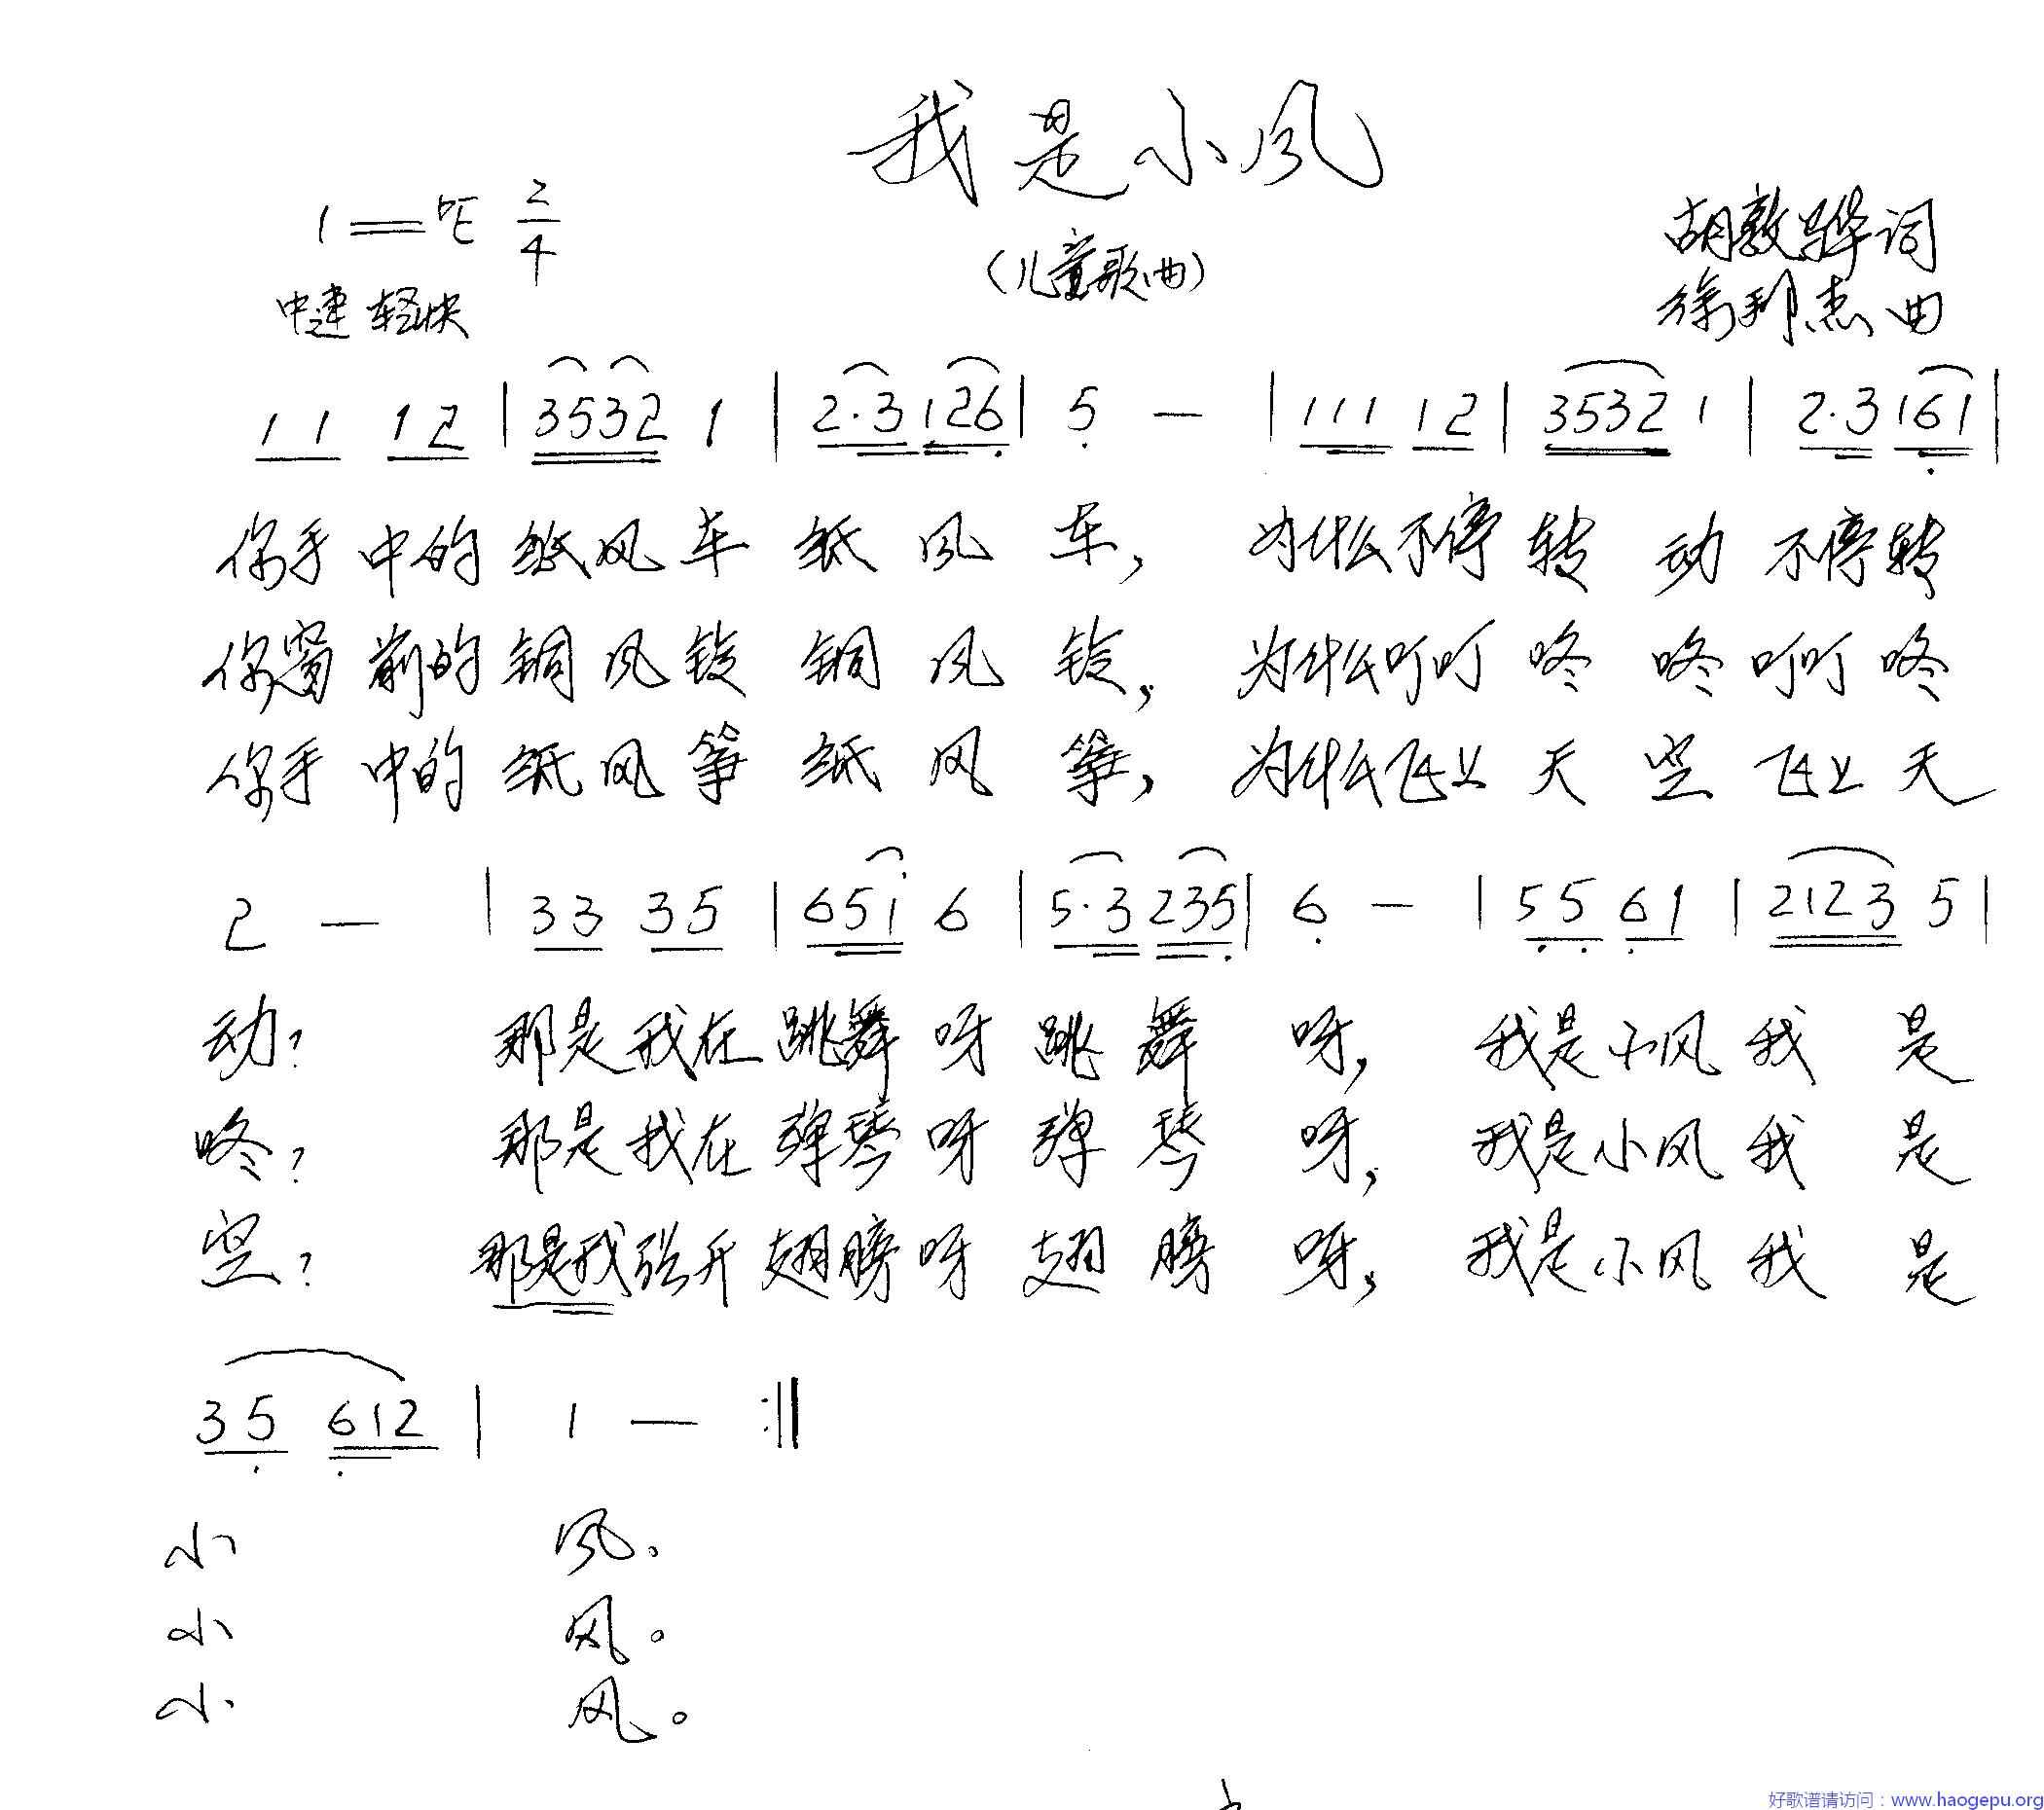 我是小風
1=♭E 2/4
(儿童歌曲)
胡敦骅词
中速 轻快
徐邦杰曲
11 12 | 3532 1 | 2·3 126 | 5 — | 111 12 | 3532 1 | 2·3 161 |
你手中的纸风车纸風车,为什么不停转动不停转
你窗前的铜风铃铜风铃,为什么叮叮咚咚叮叮咚
你手中的纸风筝纸风筝,为什么飞上天空飞上天
2 — | 33 35 | 651 6 | 5·3 235 | 6 — | 55 61 | 2123 5 |
动?那是我在跳舞呀跳舞呀,我是小风我是
咚?那是我在弹琴呀弹琴呀,我是小风我是
空?那是我张开翅膀呀翅膀呀,我是小风我是
35 612 | 1 — :‖
小風。
小风。
小风。
好歌谱请访问:www.haogepu.org